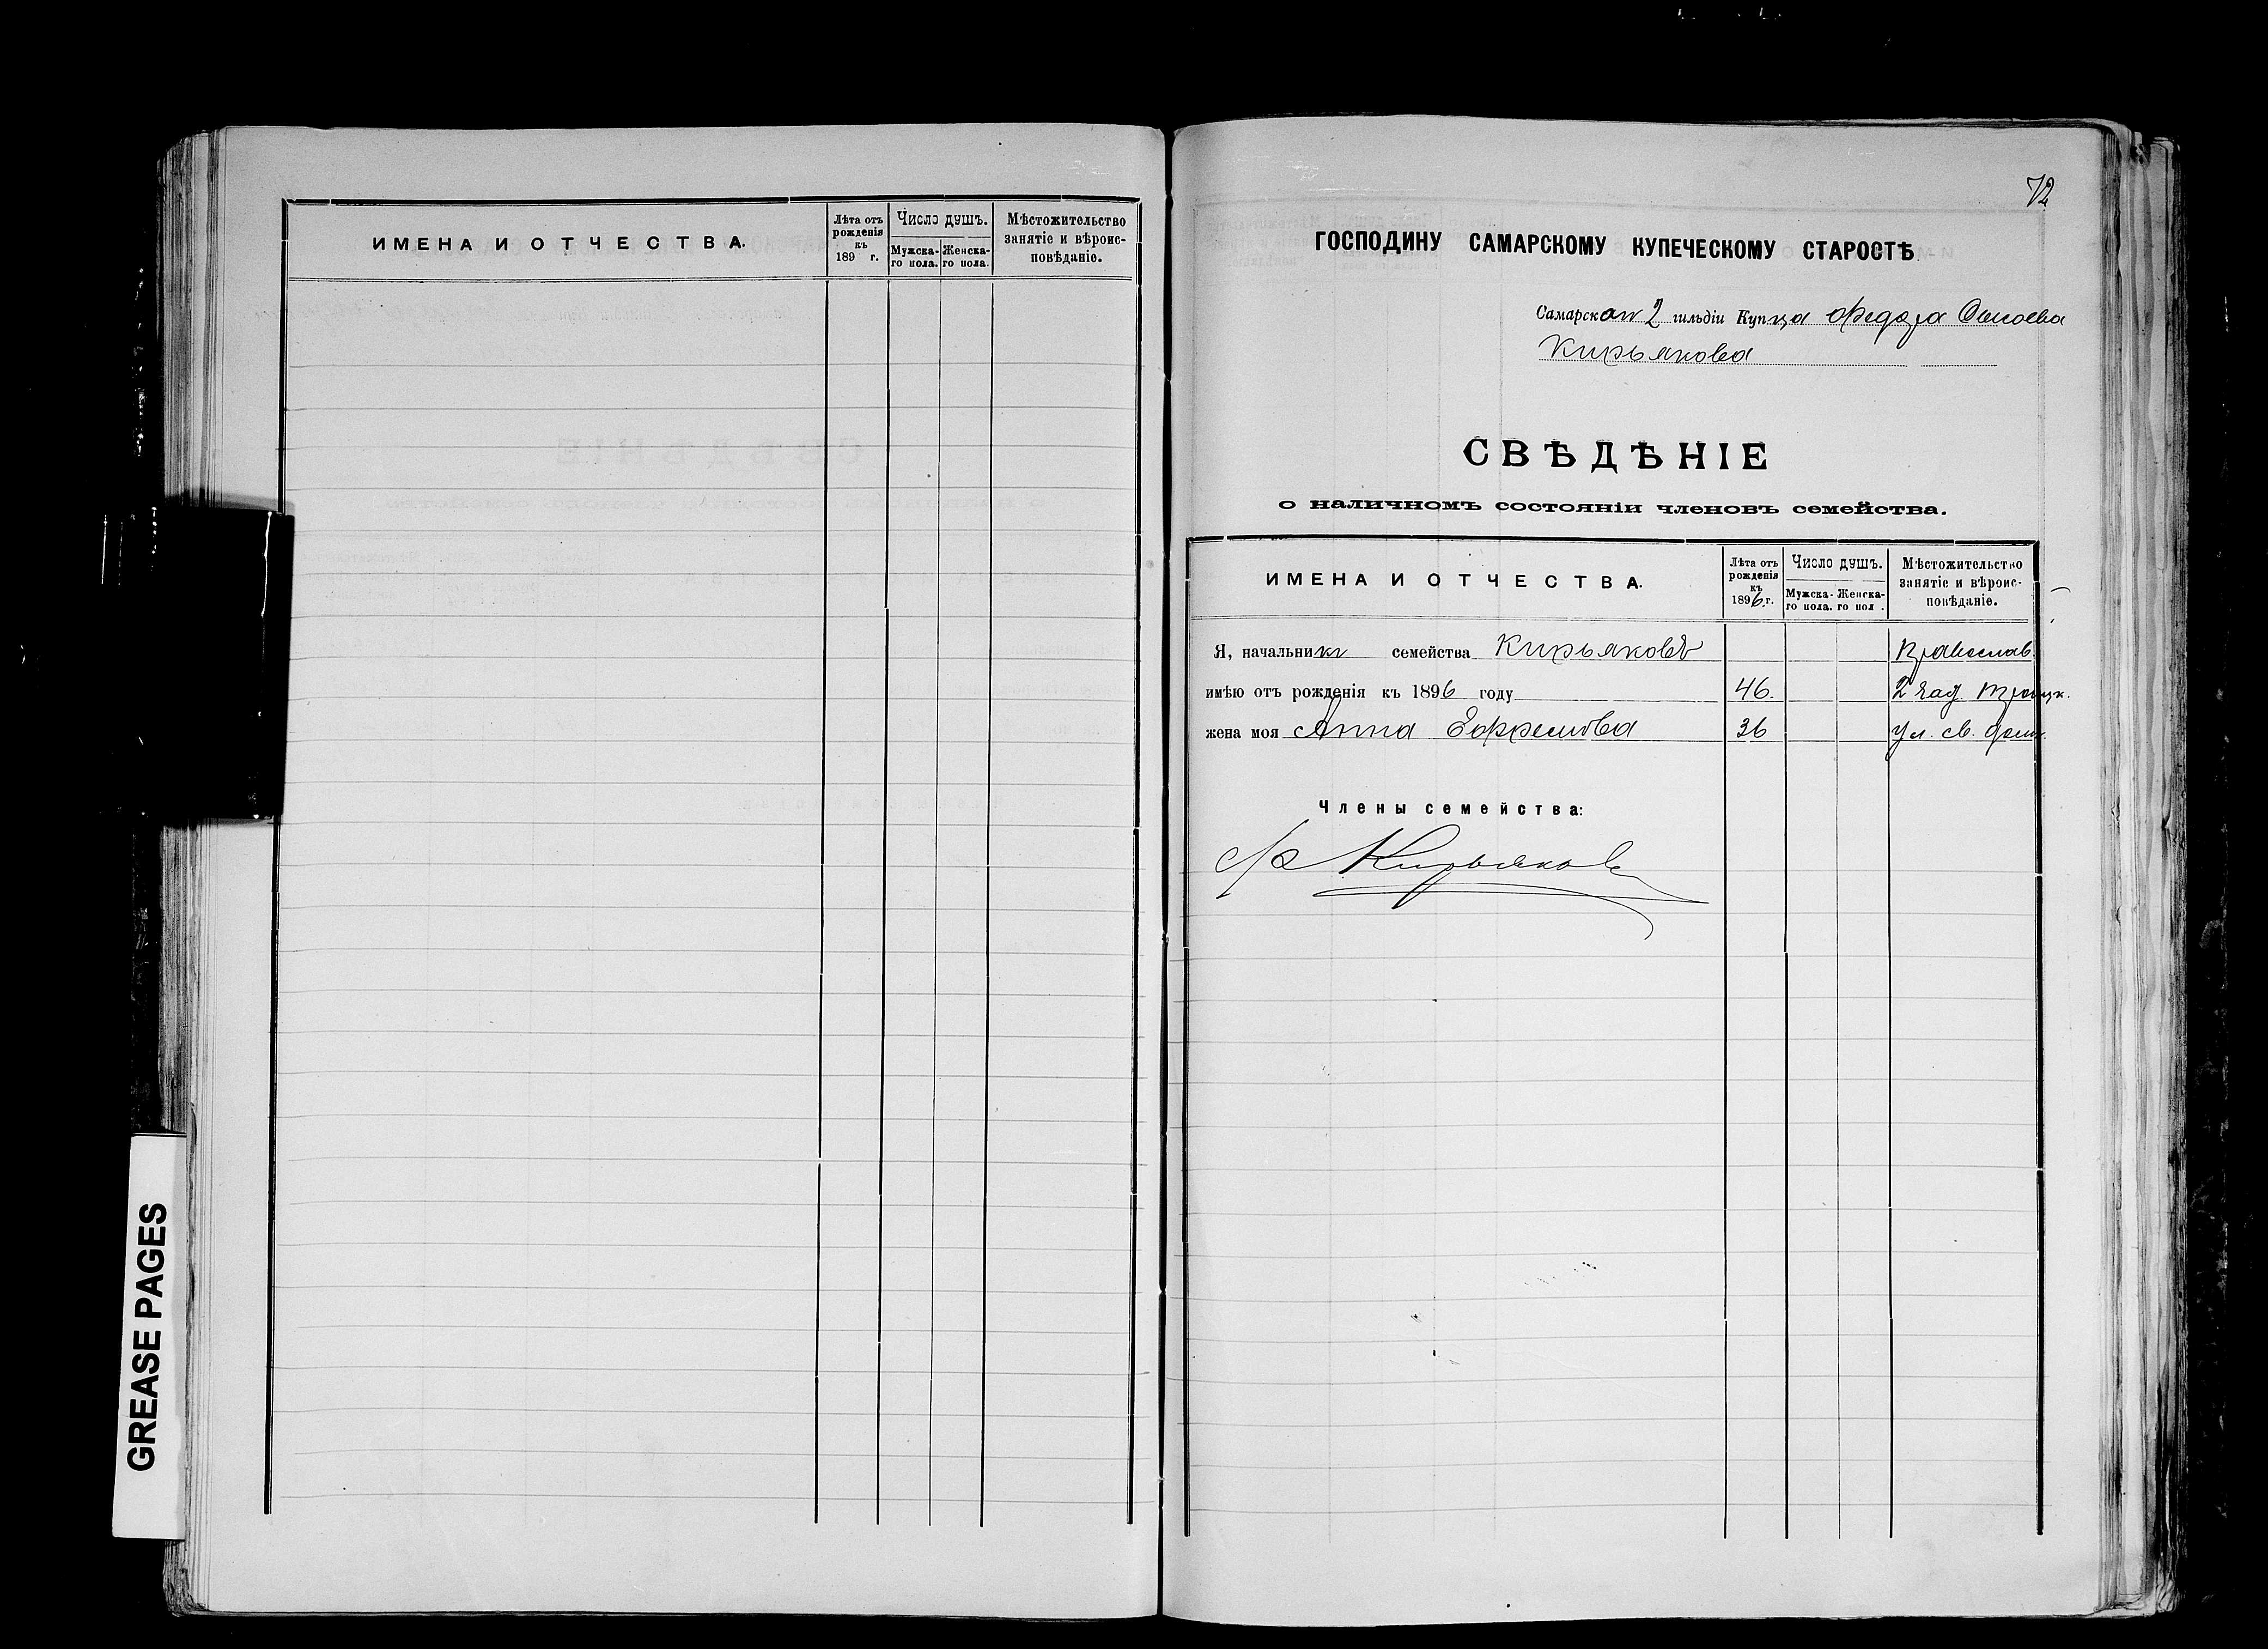 ИМЕНА И ОТЧЕСТВА.
Лѣта отъ рожденія къ 189 г.
Число душъ.
Мужска-го пола.
Женска-го пола.
Мѣстожительство занятіе и вѣроис-повѣданіе.
GREASE PAGES
72
ГОСПОДИНУ САМАРСКОМУ КУПЕЧЕСКОМУ СТАРОСТѢ
Самарскаго 2 гильдіи Купца Федора
Кирьякова
СВѢДѢНІЕ
о наличномъ состояніи членовъ семейства.
ИМЕНА И ОТЧЕСТВА.
Лѣта отъ рожденія къ 1896 г.
Число душъ.
Мужска-го пола.
Женска-го пол .
Мѣстожительство занятіе и вѣроис-повѣданіе.
Я, начальникъ семейства Кирьяковъ Православ.
имѣю отъ рожденія къ 1896 году 46. 2 час. Троицк.
жена моя Анна Ефремова 36 ул. св. домъ.
Члены семейства:
Ф Кирьяковъ